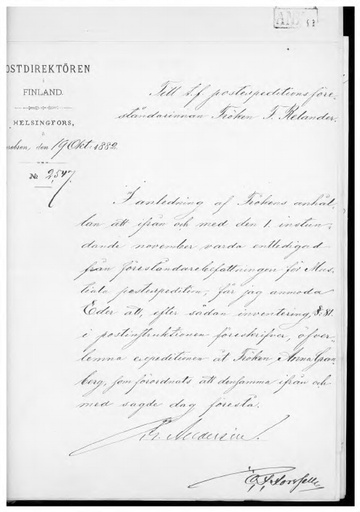 POSTDIREKTÖREN
i
FINLAND.
HELSINGFORS,
den 19 Okt. 1882.
№ 2,547.
Till t.f. postexpeditionsföre-
ståndarinnan Fröken F. Relander.
I anledning af Frökens anhål-
lan att ifrån och med den 1. instun-
dande november varda entledigad
från föreståndarebefattningen för
postexpedition, får jag anmoda
Eder att, efter sådan inventering, § 81
i postinstruktionen föreskrifver, öfver-
lemna expeditionen åt Fröken Anna Gran-
berg, som förordnats att densamma ifrån och
med sagde dag förestå.